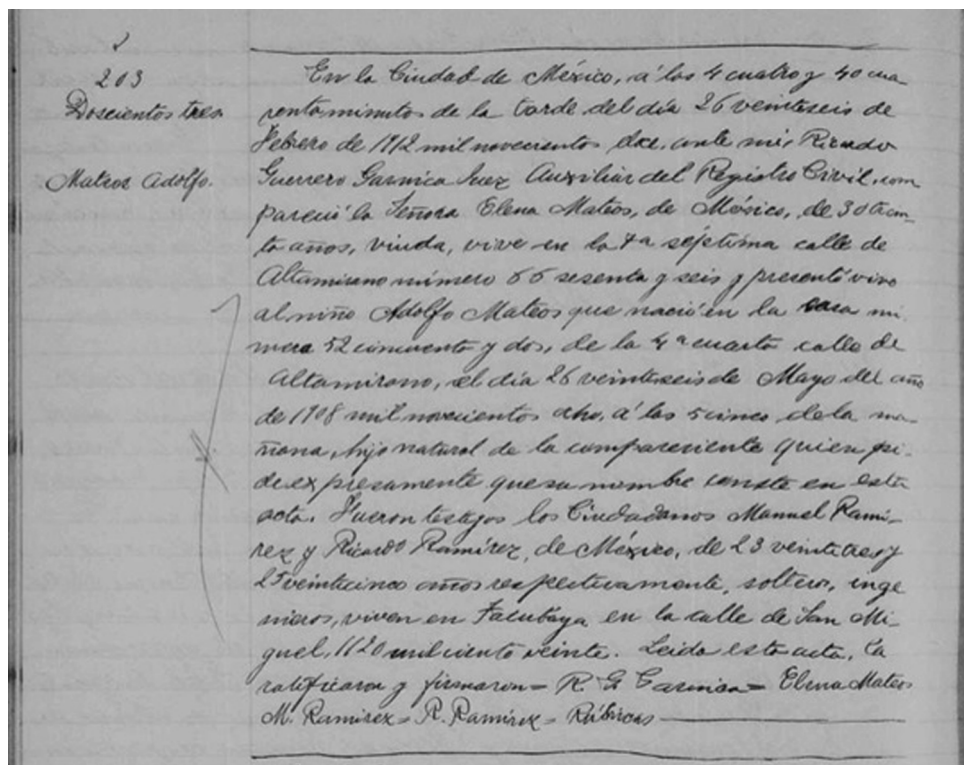 203
Doscientos tres
Mateos Adolfo.
En la Ciudad de México, á las 4 cuatro y 40 cua
renta minutos de la tarde del día 26 veintiseis de
Febrero de 1912 mil novecientos doce, ante mi, Ricardo
Guerrero Garnica Juez Auxiliar del Registro Civil, com
pareció la Señora Elena Mateos, de México, de 30 trein_
ta años, viuda, vive en la 7a séptima calle de
Altamirano número 66 sesenta y seis y presentó vivo
al niño Adolfo Mateos que nació en la casa nú
mero 52 cincuenta y dos, de la 4a cuarta calle de
Altamirano, el día 26 veintiseis de Mayo del año
de 1908 mil novecientos ocho, á las 5 cinco de la ma_
ñana, hijo natural de la compareciente quien pi_
de expresamente que su nombre conste en esta
acta. Fueron testigos los Ciudadanos Manuel Rami_
rez y Ricardo Ramírez, de México, de 23 veintitres y
25 veinticinco años respectivamente, solteros, inge
nieros, viven en Tacubaya en la calle de San Mi_
guel, 1120 mil ciento veinte. Leida esta acta, la
ratificaron y firmaron = R. G. Garnica = Elena Mateos
M. Ramirez = R. Ramírez = Rúbricas